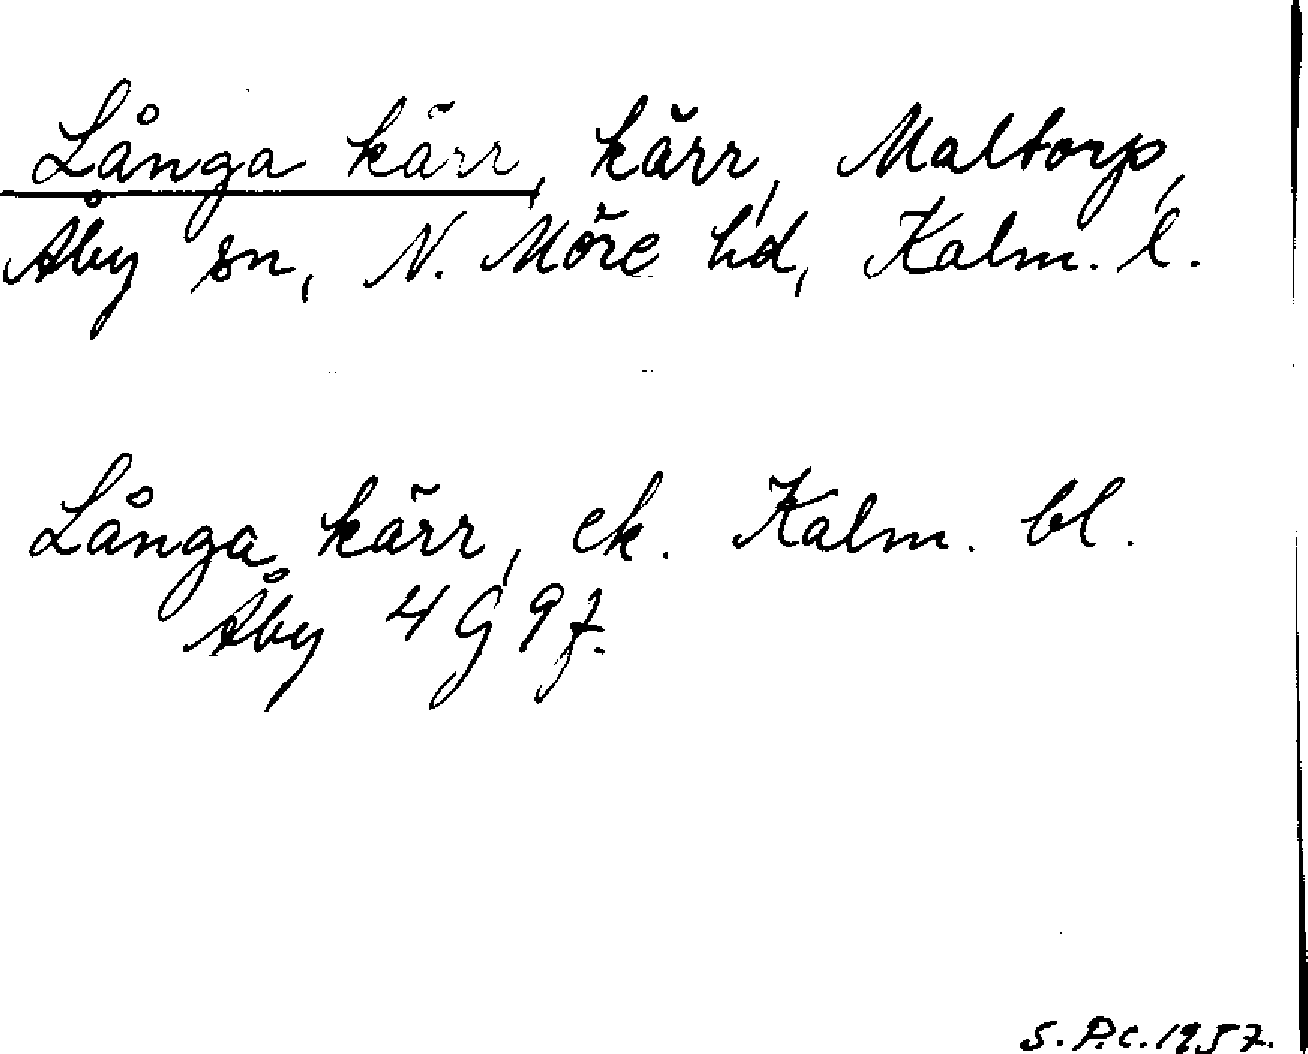 Långa kärr, kärr, Maltorp,
Åby sn, N. Möre hd, Kalm. l.
Långa kärr, ek. Kalm. bl.
Åby 4 G 9 f.
S.P.C. 1957.